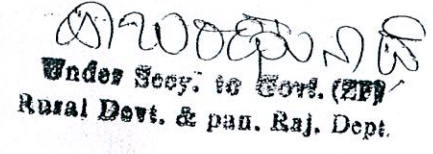 Under Secy. to Govt. (ZP)
Rural Devt. & pan. Raj. Dept.